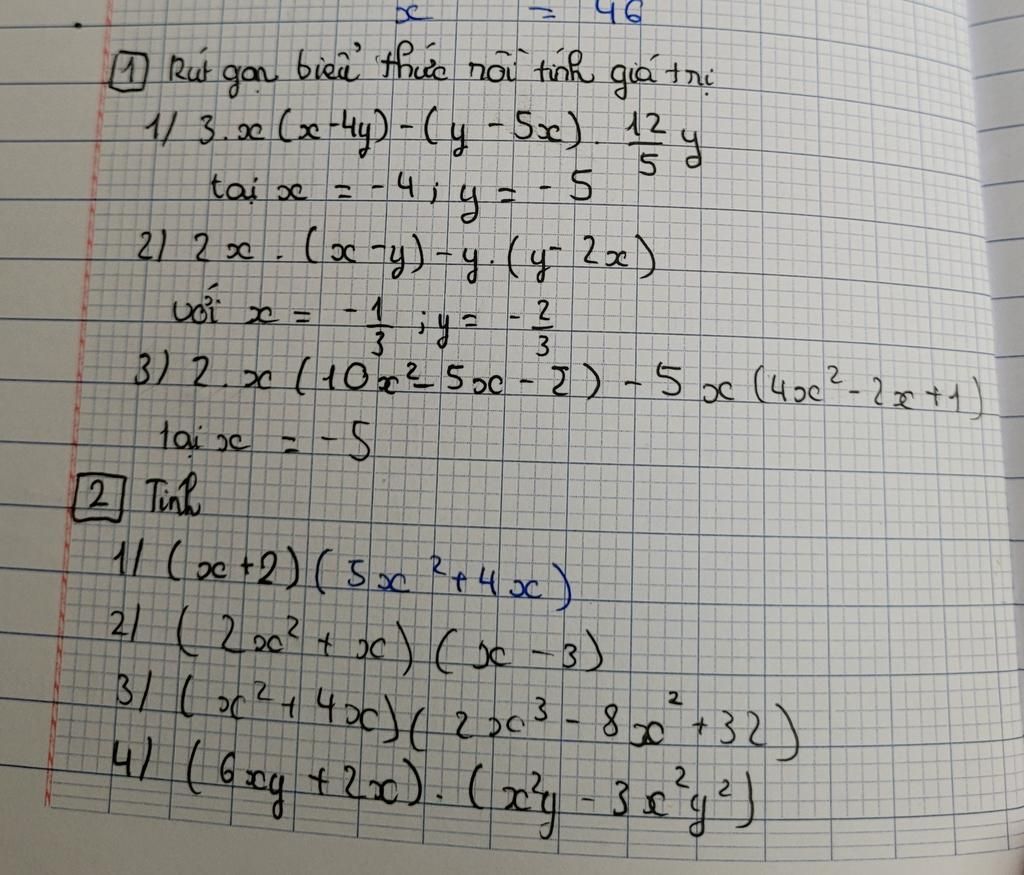 x = 46
1 Rút gọn biểu thức rồi tính giá trị
1/ 3.x(x-4y)-(y-5x). 12/5 y
tại x = -4; y = -5
2) 2x.(x-y)-y.(y-2x)
với x = -1/3; y = -2/3
3) 2.x(10x²-5x-2)-5x(4x²-2x+1)
tại x = -5
2 Tính
1/ (x+2)(5x²+4x)
2/ (2x²+x)(x-3)
3/ (x²+4x)(2x³-8x²+32)
4/ (6xy+2x).(x²y-3x²y²)